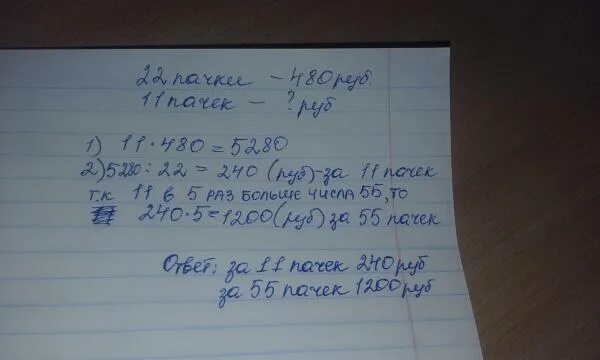 22 пачки – 480 руб.
11 пачек – ? руб
1) 11 · 480 = 5280
2) 5280 : 22 = 240 (руб) – за 11 пачек
т.к 11 в 5 РАЗ БОЛЬШЕ ЧИСЛА 55, то
240 · 5 = 1200 (руб) за 55 пачек
Ответ: за 11 пачек 240 руб
за 55 пачек 1200 руб